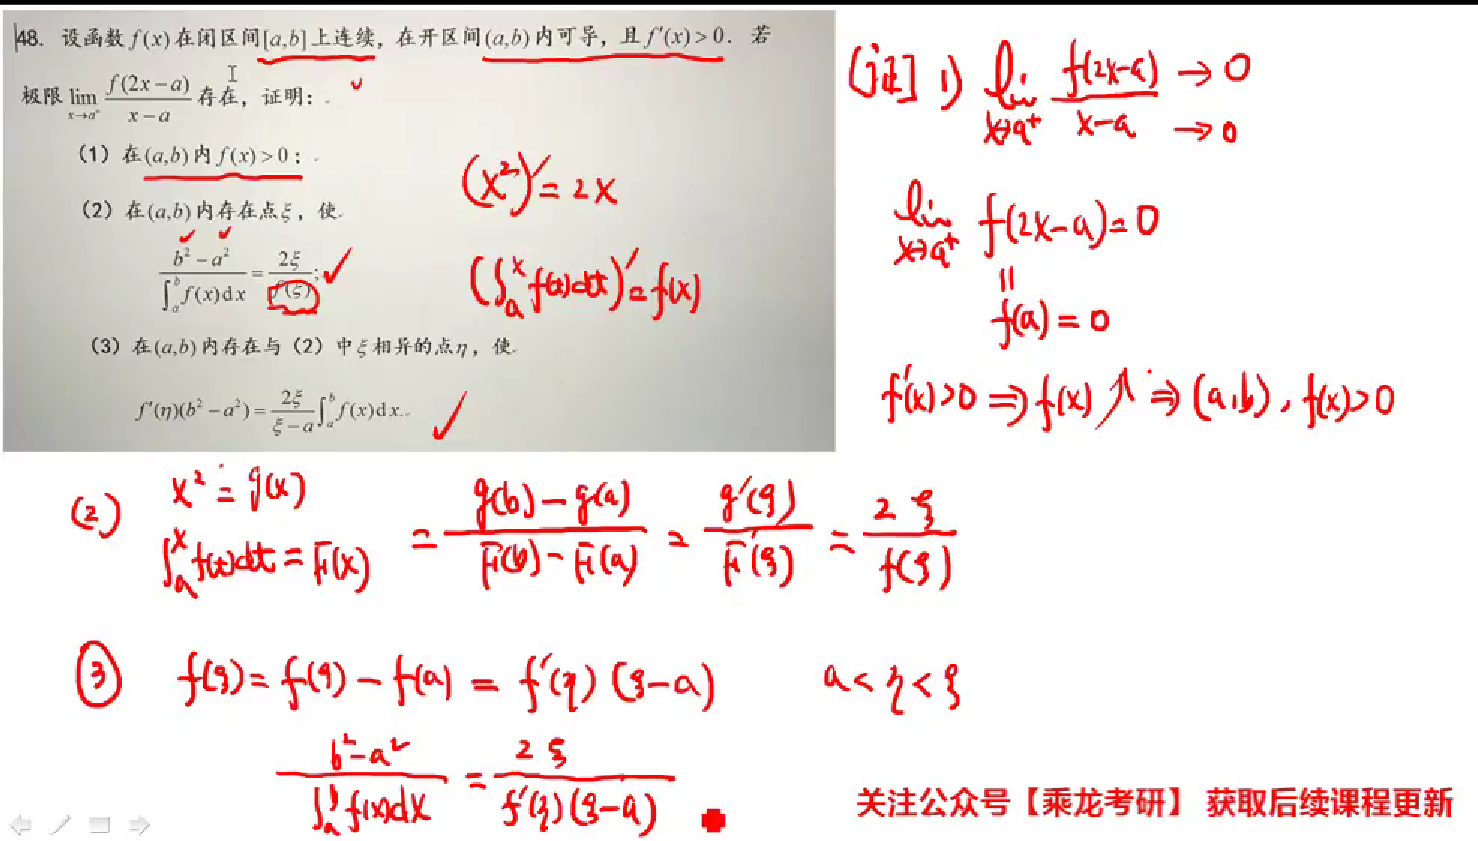 48. 设函数 f(x) 在闭区间[a,b]上连续，在开区间(a,b)内可导，且 f′(x)>0．若
极限 lim_{x→a⁺} f(2x−a)/(x−a) 存在，证明：
（1）在(a,b)内 f(x)>0；
（2）在(a,b)内存在点ξ，使
(b²−a²)/∫ₐᵇ f(x)dx = 2ξ/f(ξ);
（3）在(a,b)内存在与（2）中ξ相异的点η，使
f′(η)(b²−a²)= 2ξ/(ξ−a) ∫ₐᵇ f(x)dx.
(x²)′=2x
(∫ₐˣ f(t)dt)′=f(x)
[证] 1) lim_{x→a⁺} f(2x−a)/(x−a) →0 →0
lim_{x→a⁺} f(2x−a)=0
=
f(a)=0
f′(x)>0 ⇒ f(x)↗ ⇒ (a,b), f(x)>0
(2) x²=g(x)
∫ₐˣ f(t)dt=F(x)
= (g(b)−g(a))/(F(b)−F(a)) = g′(ξ)/F′(ξ) = 2ξ/f(ξ)
③ f(ξ)=f(ξ)−f(a)=f′(η)(ξ−a) a<η<ξ
(b²−a²)/∫ₐᵇ f(x)dx = 2ξ/(f′(η)(ξ−a))
关注公众号【乘龙考研】 获取后续课程更新